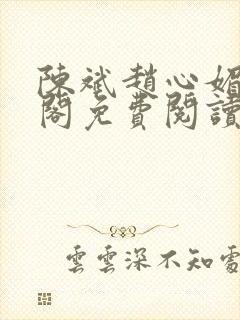 陳斌趙心媚
閣免費閱讀
雲雲深不知處